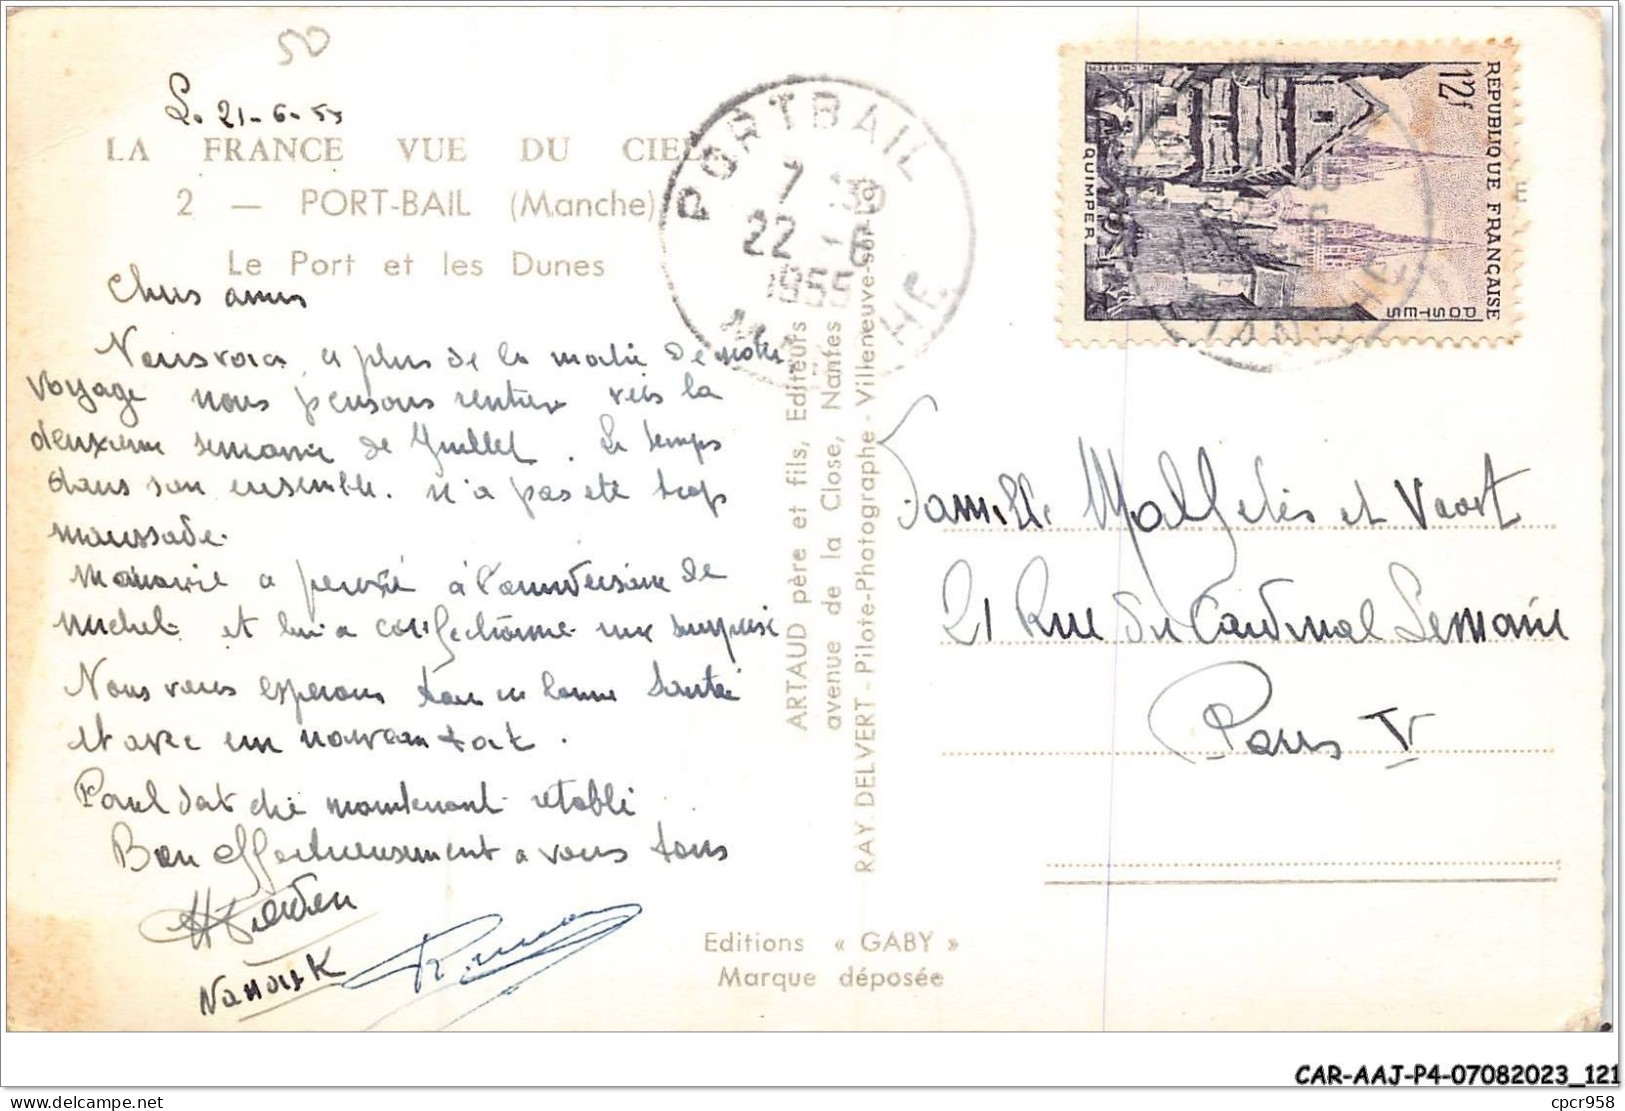 50
21-6-55
LA FRANCE VUE DU CIEL
2 — PORT-BAIL (Manche)
Le Port et les Dunes
Chers amis
Nous voici à plus de la moitié de notre
voyage nous pensons rentrer vers la
deuxième semaine de Juillet. Le temps
dans son ensemble n'a pas été trop
maussade.
a pensé à l'anniversaire de
Michel et lui a confectionné une surprise
Nous vous espérons tous en bonne santé
et avec un nouveau toit.
Paul doit être maintenant rétabli
Bien affectueusement à vous tous
PORTBAIL
7 30
22 - 6
1955
MANCHE
ARTAUD père et fils, Editeurs
avenue de la Close, Nantes
RAY. DELVERT - Pilote-Photographe - Villeneuve-sur-Lot
REPUBLIQUE FRANÇAISE
12f
POSTES
QUIMPER
MANCHE
Famille et
21 Rue du Cardinal Lemoine
Paris V
Editions « GABY »
Marque déposée
CAR-AAJ-P4-07082023_121
delcampe.net
cpcr958